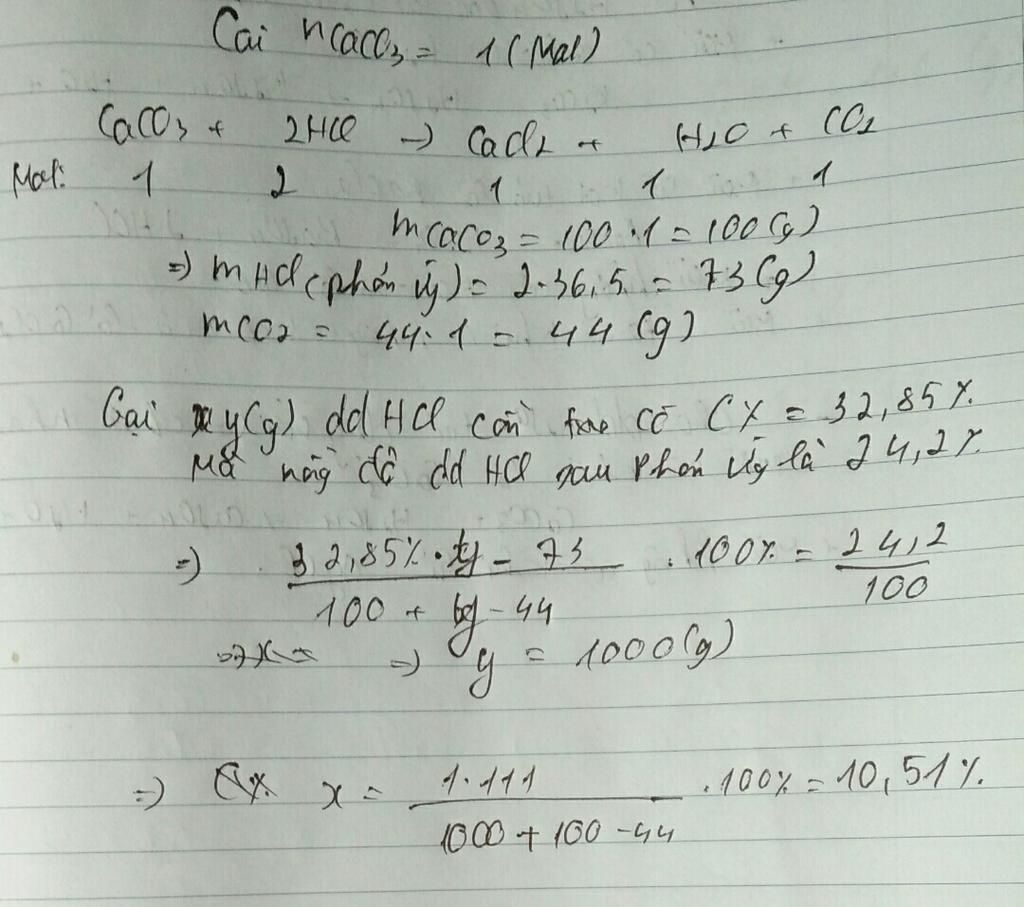 Gọi nCaCO3 = 1 (Mol)
CaCO3 + 2HCl → CaCl2 + H2O + CO2
Mol: 1 2 1 1 1
mCaCO3 = 100 . 1 = 100 (g)
=> mHCl (phản ứng) = 2.36,5 = 73 (g)
mCO2 = 44. 1 = 44 (g)
Gọi y(g) dd HCl cần có C% = 32,85%
Mà nồng độ dd HCl sau phản ứng là 24,2%
=> (32,85% . y - 73) / (100 + y - 44) . 100% = 24,2 / 100
=> y = 1000 (g)
=> x = (1.111) / (1000 + 100 - 44) . 100% = 10,51%.